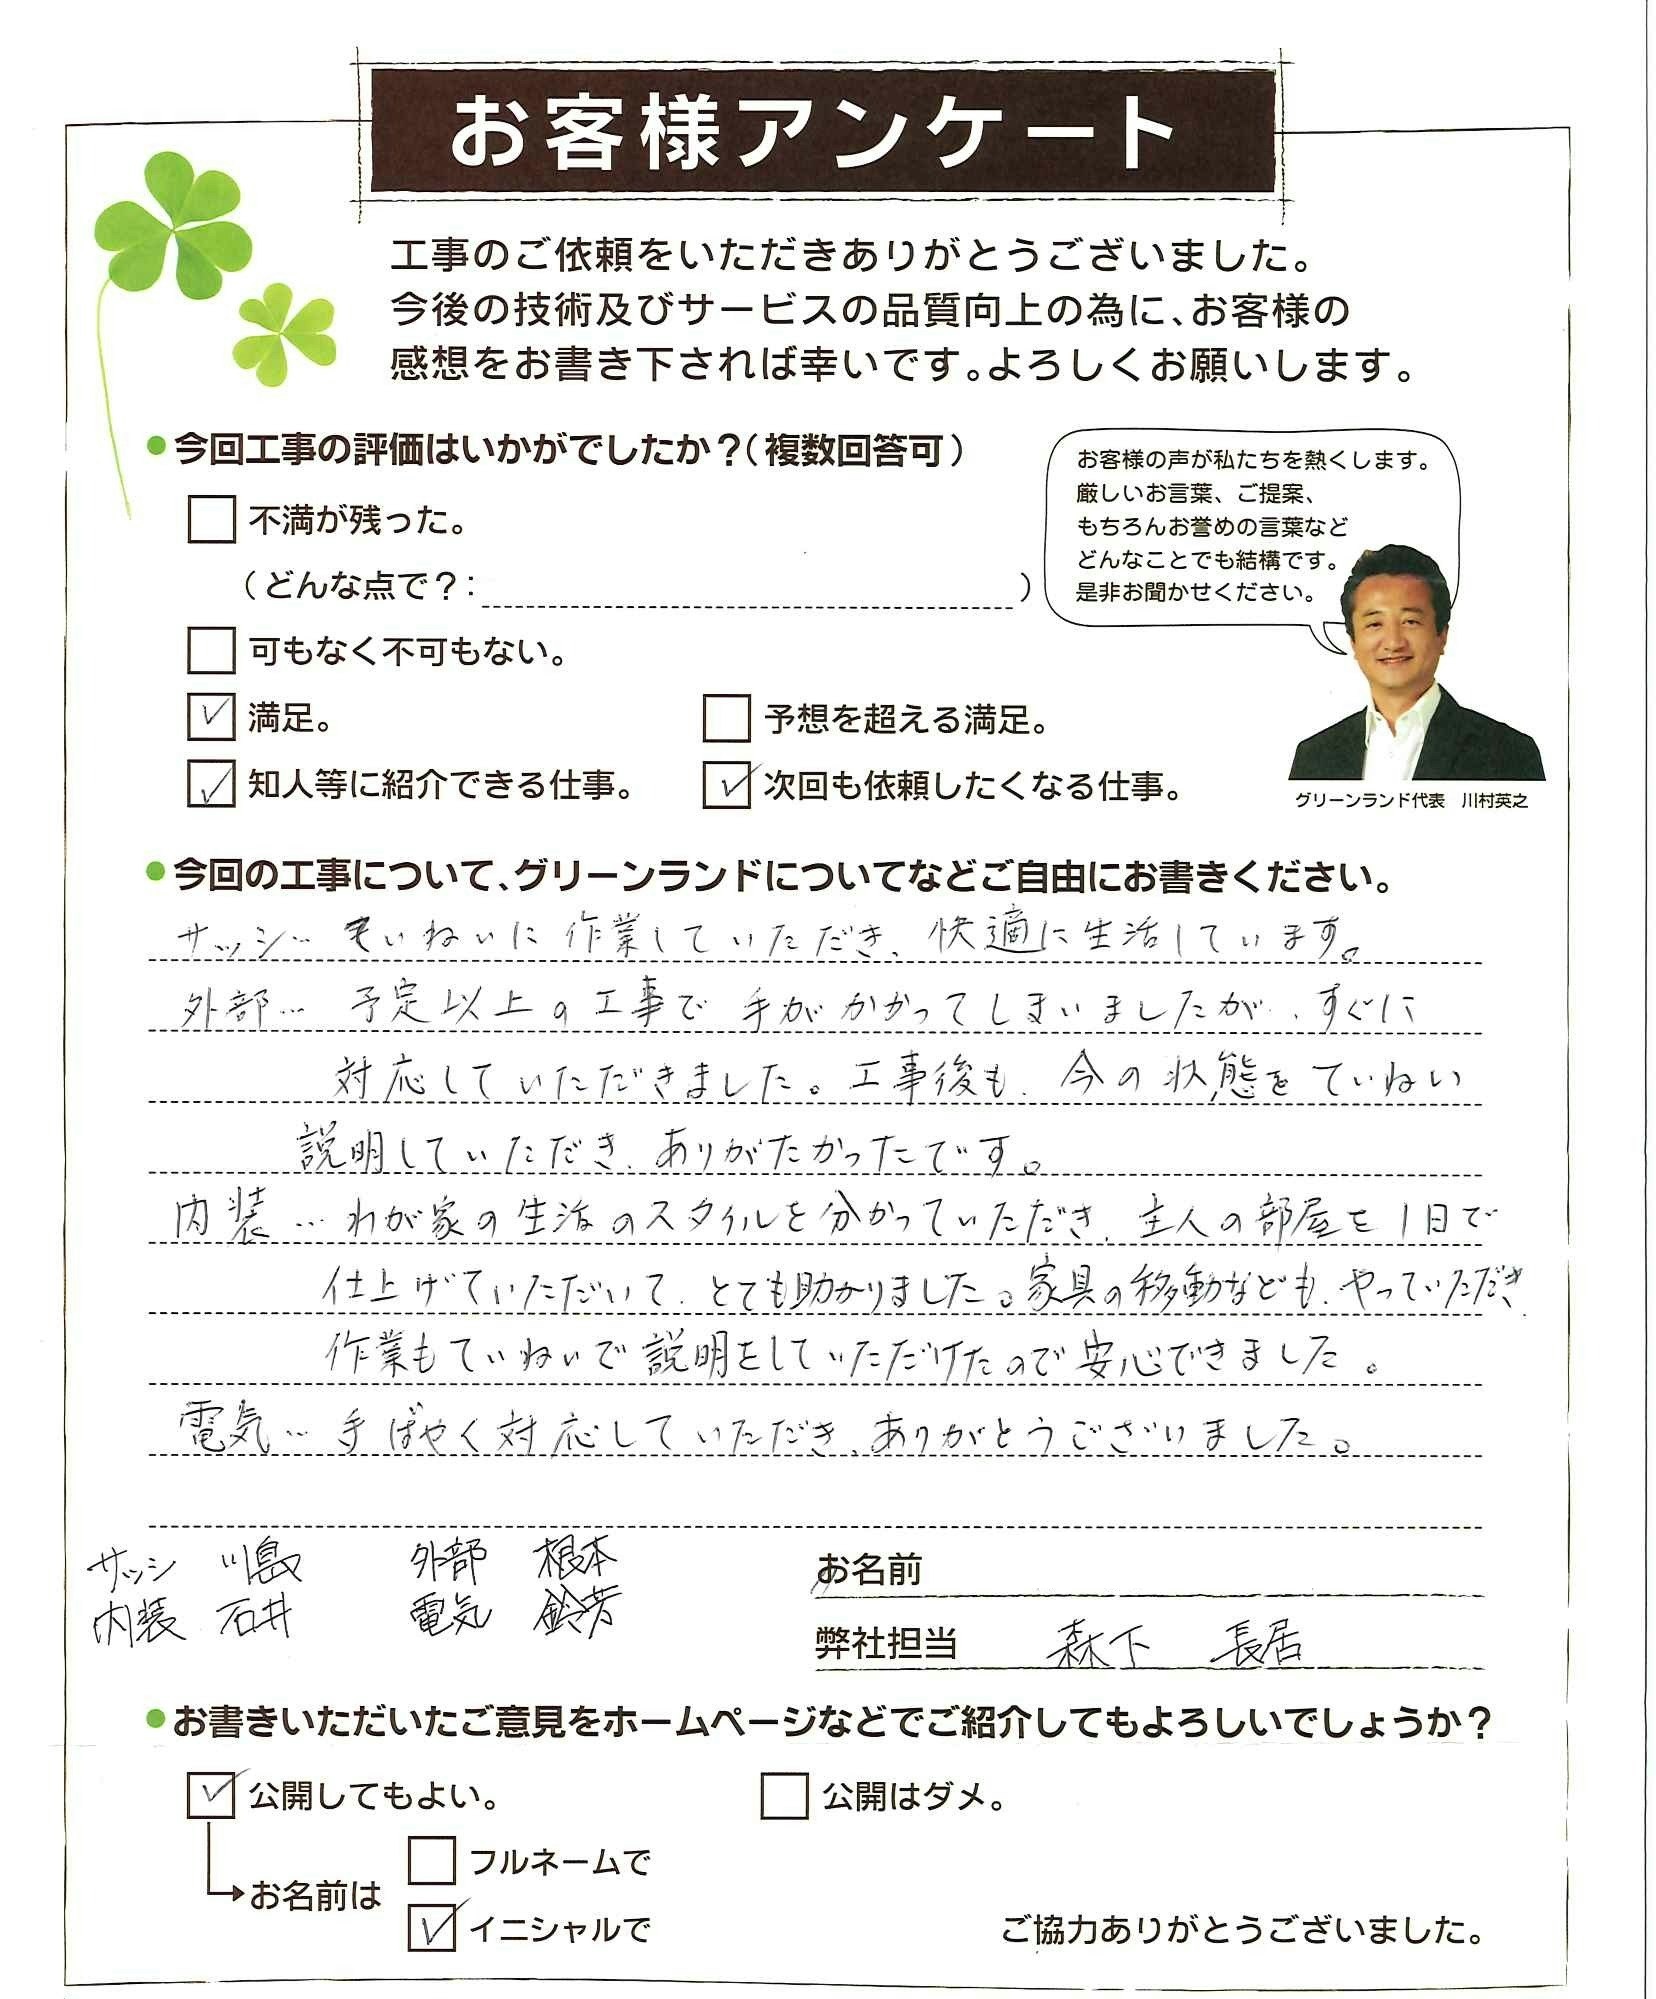 お客様アンケート
工事のご依頼をいただきありがとうございました。
今後の技術及びサービスの品質向上の為に、お客様の
感想をお書き下されば幸いです。よろしくお願いします。
●今回工事の評価はいかがでしたか?(複数回答可)
お客様の声が私たちを熱くします。
厳しいお言葉、ご提案、
もちろんお誉めの言葉など
どんなことでも結構です。
是非お聞かせください。
不満が残った。
(どんな点で?: )
可もなく不可もない。
満足。 予想を超える満足。
知人等に紹介できる仕事。 次回も依頼したくなる仕事。
グリーンランド代表 川村英之
●今回の工事について、グリーンランドについてなどご自由にお書きください。
サッシ… ていねいに作業していただき、快適に生活しています。
外部… 予定以上の工事で手がかかってしまいましたが、すぐに
対応していただきました。工事後も、今の状態をていねい
説明していただき、ありがたかったです。
内装… わが家の生活のスタイルを分かっていただき、主人の部屋を1日で
仕上げていただいて、とても助かりました。家具の移動なども、やっていただき
作業もていねいで説明をしていただけたので安心できました。
電気… 手ばやく対応していただき、ありがとうございました。
サッシ 川島 外部 根本
内装 石井 電気 鈴芳
お名前
弊社担当 森下 長居
●お書きいただいたご意見をホームページなどでご紹介してもよろしいでしょうか?
公開してもよい。 公開はダメ。
お名前は
フルネームで
イニシャルで
ご協力ありがとうございました。